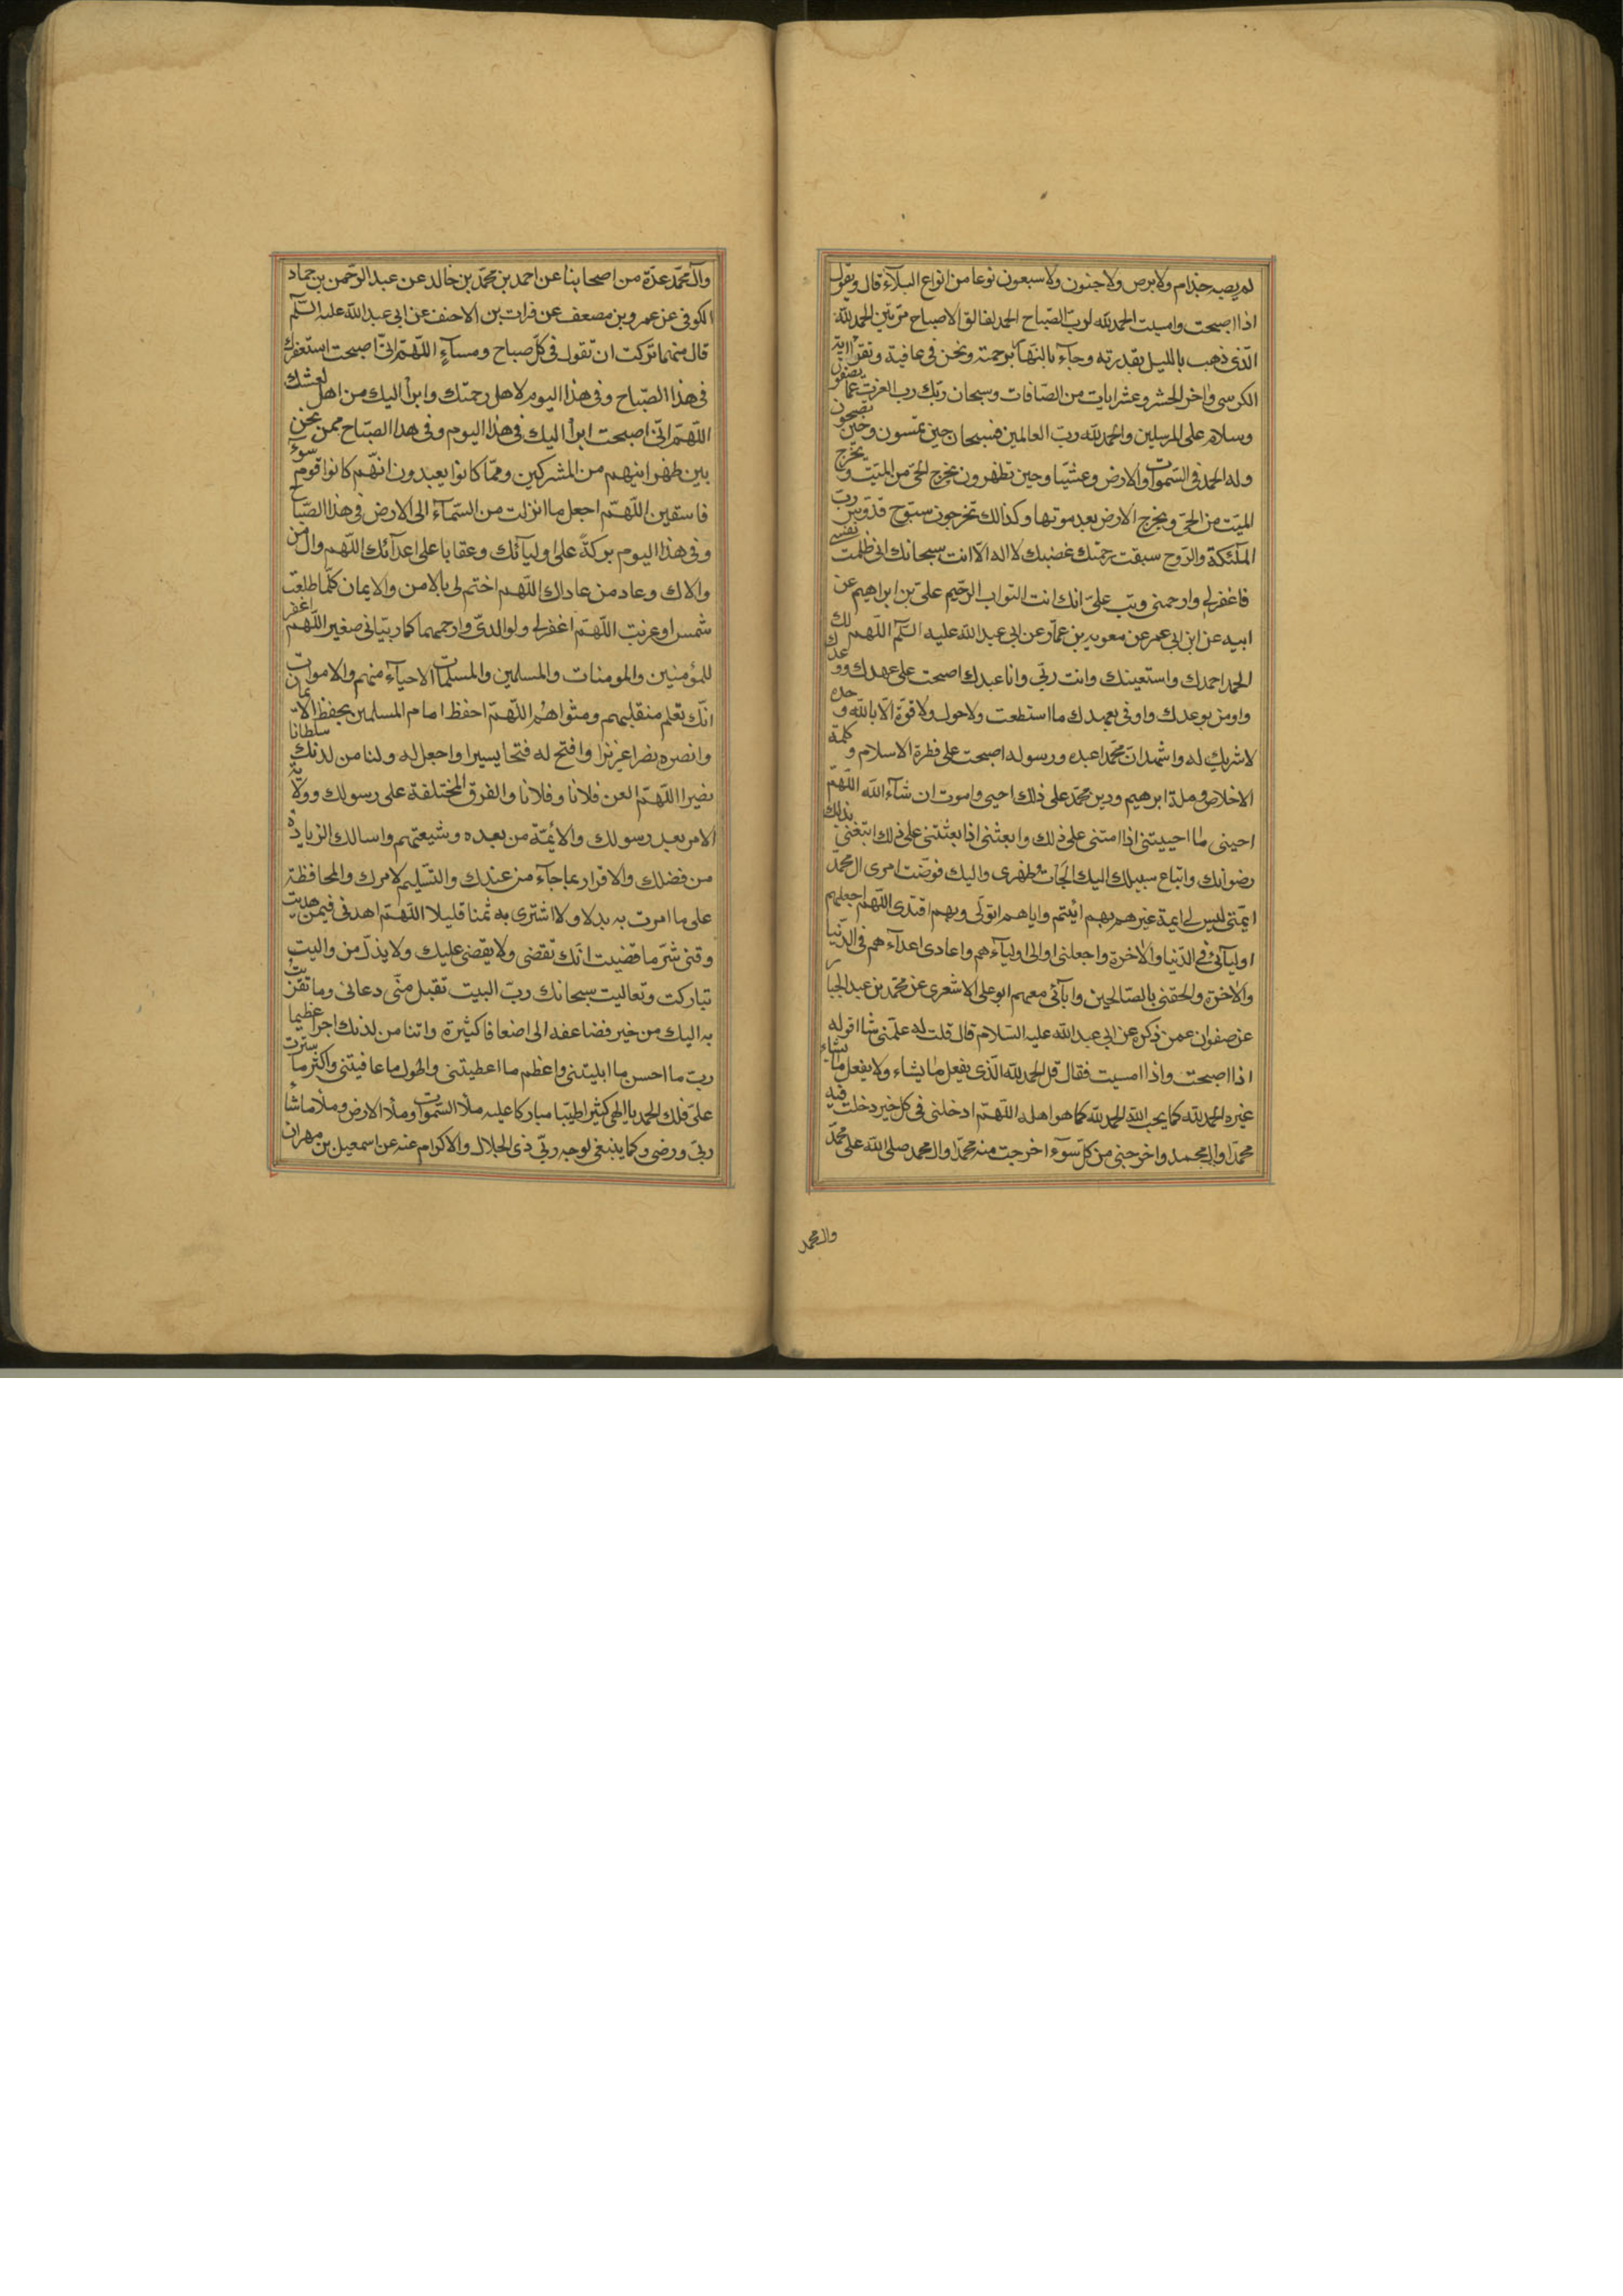 لم يصبه جذام ولا برص ولا جنون ولا سبعون نوعا من انواع البلآء قال ويقول
اذا اصبحت وامسيت الحمد لله لرب الصّباح الحمد لفالق الاصباح مرّتين الحمد لله
الّذى ذهب بالليل بقدرته وجآء بالنهار برحمته ونحن فى عافية وتقرا اية
الكرسى واخر الحشر وعشر ايات من الصّافات وسبحان ربّك رب العزت عمّا يصفون
وسلام على المرسلين والحمد لله ربّ العالمين فسبحان حين تمسون وحين تصبحون
وله الحمد فى السّموات والارض وعشيّا وحين تظهرون يخرج الحىّ من الميّت ويخرج
الميّت من الحىّ ويخرج الارض بعد موتها وكذالك تخرجون سبّوح قدّوس ربّ
الملٓئكة والرّوح سبقت رحمتك غضبك لا اله الّا انت سبحانك انى ظلمت نفسى
فاغفرلى وارحمنى وتب علىّ انك انت التواب الرّحيم علىّ بن ابراهيم عن
ابيه عن ابن ابى عمر عن معوية بن عمّار عن ابى عبد الله عليه السّلم اللّهم لك
الحمد احمدك واستعينك وانت ربّى وانا عبدك اصبحت على عهدك ووعدك
واومن بوعدك واوفى بعهدك ما استطعت ولا حول ولا قوّة الّا بالله وحده
لا شريك له واشهد انّ محمّدا عبده ورسوله اصبحت على فطرة الاسلام وكلمة
الاخلاص وملة ابرهيم ودين محمّد على ذلك احيى واموت ان شآء الله اللّهمّ
احينى ما احييتنى اذا امتنى على ذلك وابعثنى اذا بعثتنى على ذلك ابتغى بذلك
رضوانك واتباع سبيلك اليك الجات ظهرى واليك فوضت امرى ال محمّد
ائمّتى ليس لى ائمة غيرهم بهم ائتم واياهم اتولّى وبهم اقتدى اللّهمّ اجعلهم
اوليآئى فى الدّنيا والاخرة واجعلنى اوالى اوليآءهم واعادى اعدآءهم فى الدّنيا
والاخرة والحقنى بالصّالحين وابآئى معهم ابو على الاشعرى عن محمّد بن عبد الجبار
عن صفوان عمن ذكره عن ابى عبد الله عليه السّلام قال قلت له علّمنى شا اقوله
اذا اصبحت واذا امسيت فقال قل الحمد لله الّذى يفعل ما يشاء ولا يفعل ما يشاء
غيره الحمد لله كما يحب الله الحمد لله كما هو اهله اللّهمّ ادخلنى فى كل خير دخلت فيه
محمّدا وال محمد واخرجنى من كلّ سوٓء اخرجت منه محمّدا وال محمد صلى الله على محمّد
وال محمد
وآل محمّد عدّة من اصحابنا عن احمد بن محمّد بن خالد عن عبد الرّحمن بن حماد
الكوفى عن عمرو بن مصعف عن فرات بن الاحنف عن ابى عبد الله عليه السّلم
قال مهما تركت ان تقول فى كلّ صباح ومسآءٍ اللّهمّ انّى اصبحت استغفرك
فى هذا الصّباح وفى هذا اليوم لاهل رحمتك وابرأ اليك من اهل لعنتك
اللّهمّ انّى اصبحت ابرأ اليك فى هذا اليوم وفى هذا الصّباح ممن نحن
بين ظهرانيهم من المشركين وممّا كانوا يعبدون انهّم كانوا قوم سوٓء
فاسقين اللّهمّ اجعل ما انزلت من السّمآء الى الارض فى هذا الصّباح
وفى هذا اليوم بركةً على اوليآئك وعقابا على اعدآئك اللّهم وال من
والاك وعاد من عاداك اللّهم اختم لى بالامن والايمان كلّما طلعت
شمس او غربت اللّهمّ اغفرلى ولوالدىّ وارحمهما كما ربّيانى صغيرا اللّهمّ اغفر
للمؤمنين والمومنات والمسلمين والمسلمات الاحيآء منهم والاموات
انّك تعلم منقلبهم ومثواهم اللّهمّ احفظ امام المسلمين بحفظ الايمان
وانصره نصرا عزيزا وافتح له فتحا يسيرا واجعل له ولنا من لدنك سلطانا
نصيرا اللّهمّ العن فلانا وفلانا والفرق المختلفة على رسولك وولاية
الامر بعد رسولك والائمّة من بعده وشيعتهم واسالك الزيادة
من فضلك والاقرار بما جآء من عندك والتّسليم لامرك والمحافظة
على ما امرت به بدلا ولا اشترى به ثمنا قليلا اللّهمّ اهدنى فيمن هديت
وقنى شرّ ما قضيت انّك تقضى ولا يقضى عليك ولا يذلّ من واليت
تباركت وتعاليت سبحانك ربّ البيت تقبل منّى دعائى وما تقربت
به اليك من خير فضاعفه الى اضعافا كثيرة واتنا من لدنك اجرا عظيما
ربّ ما احسن ما ابليتنى واعظم ما اعطيتنى واطول ما عافيتنى واكثر ما سترت
علىّ فلك الحمد يا الهى كثيرا طيّبا مباركا عليه ملأ السّموات وملأ الارض وملأ ما شآء
ربّى ورضى وكما ينبغى لوجه ربّى ذى الجلال والاكرام عنه عن اسمعيل بن مهران